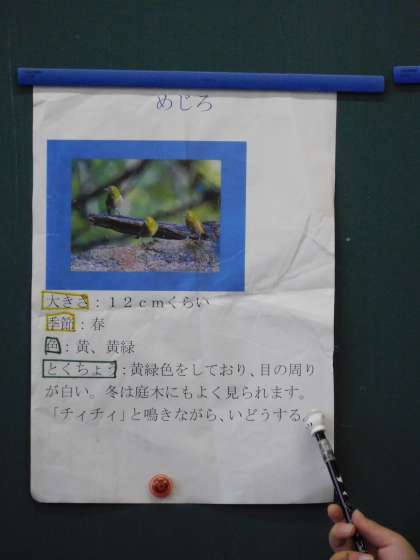 めじろ
大きさ：１２ｃｍくらい
季節：春
色：黄、黄緑
とくちょう：黄緑色をしており、目の周り
が白い。冬は庭木にもよく見られます。
「チィチィ」と鳴きながら、いどうする。